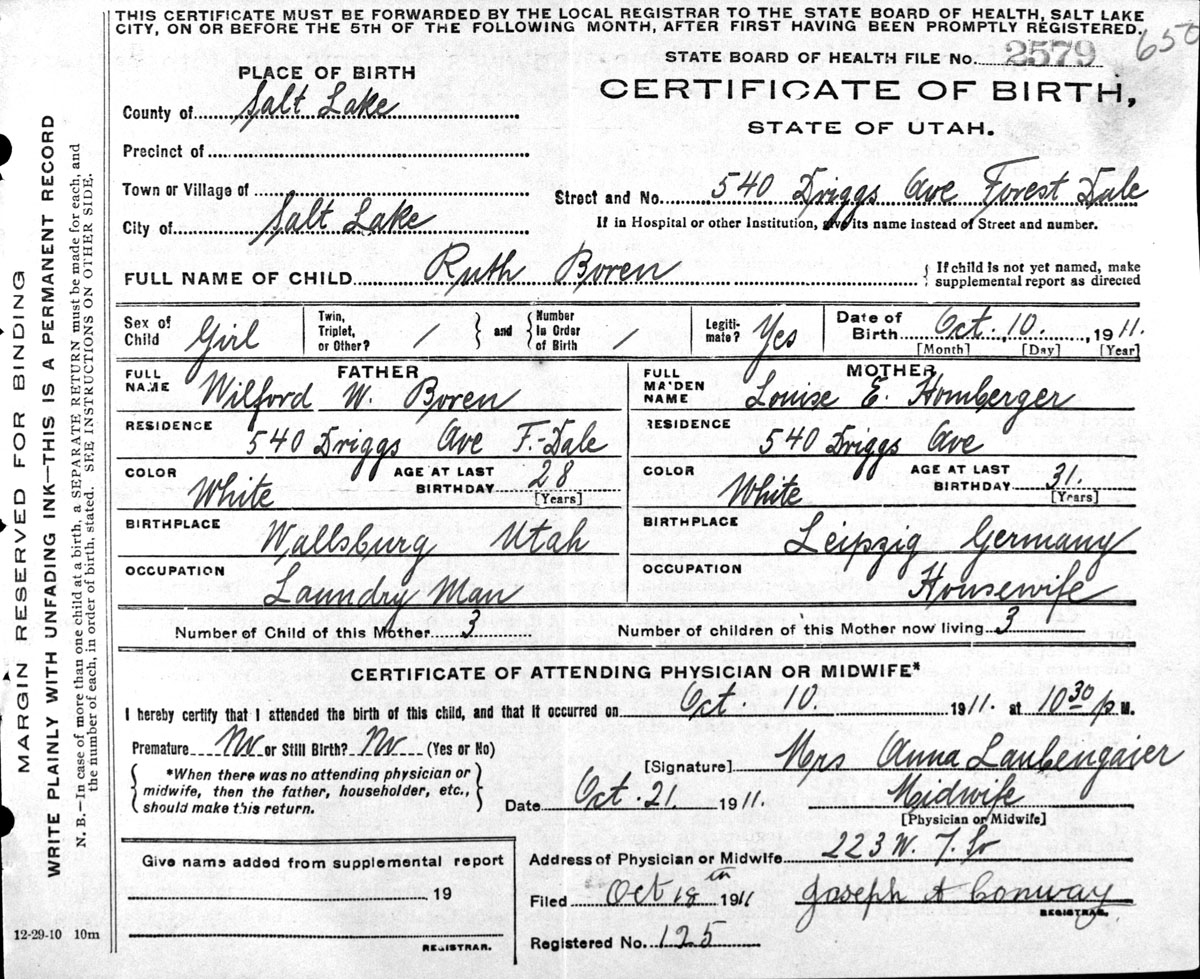 THIS CERTIFICATE MUST BE FORWARDED BY THE LOCAL REGISTRAR TO THE STATE BOARD OF HEALTH, SALT LAKE
CITY, ON OR BEFORE THE 5TH OF THE FOLLOWING MONTH, AFTER FIRST HAVING BEEN PROMPTLY REGISTERED.
650
STATE BOARD OF HEALTH FILE NO. 2579
PLACE OF BIRTH
CERTIFICATE OF BIRTH,
STATE OF UTAH.
County of Salt Lake
Precinct of
Town or Village of
Street and No. 540 Driggs Ave Forest Dale
City of Salt Lake
If in Hospital or other Institution, give its name instead of Street and number.
FULL NAME OF CHILD Ruth Boren
If child is not yet named, make
supplemental report as directed
Sex of Child Girl
Twin, Triplet, or Other? /
and
Number In Order of Birth /
Legiti-mate? Yes
Date of Birth Oct. 10, 1911.
[Month] [Day] [Year]
FATHER
FULL NAME Wilford W. Boren
RESIDENCE 540 Driggs Ave F.-Dale
COLOR White
AGE AT LAST BIRTHDAY 28
[Years]
BIRTHPLACE Wallsburg Utah
OCCUPATION Laundry Man
MOTHER
FULL MAIDEN NAME Louise E. Homberger
RESIDENCE 540 Driggs Ave
COLOR White
AGE AT LAST BIRTHDAY 31.
[Years]
BIRTHPLACE Leipzig Germany
OCCUPATION Housewife
Number of Child of this Mother 3
Number of children of this Mother now living 3
CERTIFICATE OF ATTENDING PHYSICIAN OR MIDWIFE*
I hereby certify that I attended the birth of this child, and that it occurred on Oct. 10. 1911. at 10 30 p M.
Premature No or Still Birth? No (Yes or No)
[Signature] Mrs Anna Laubengaier
*When there was no attending physician or
midwife, then the father, householder, etc.,
should make this return.
Date Oct. 21. 1911.
Midwife
[Physician or Midwife]
Give name added from supplemental report
19
REGISTRAR.
Address of Physician or Midwife 223 W. 7. So
Filed Oct 18 1911
Joseph A Conway
REGISTRAR.
Registered No. 125
12-29-10 10m
MARGIN RESERVED FOR BINDING
WRITE PLAINLY WITH UNFADING INK—THIS IS A PERMANENT RECORD
N. B.—In case of more than one child at a birth, a SEPARATE RETURN must be made for each, and
the number of each, in order of birth, stated. SEE INSTRUCTIONS ON OTHER SIDE.